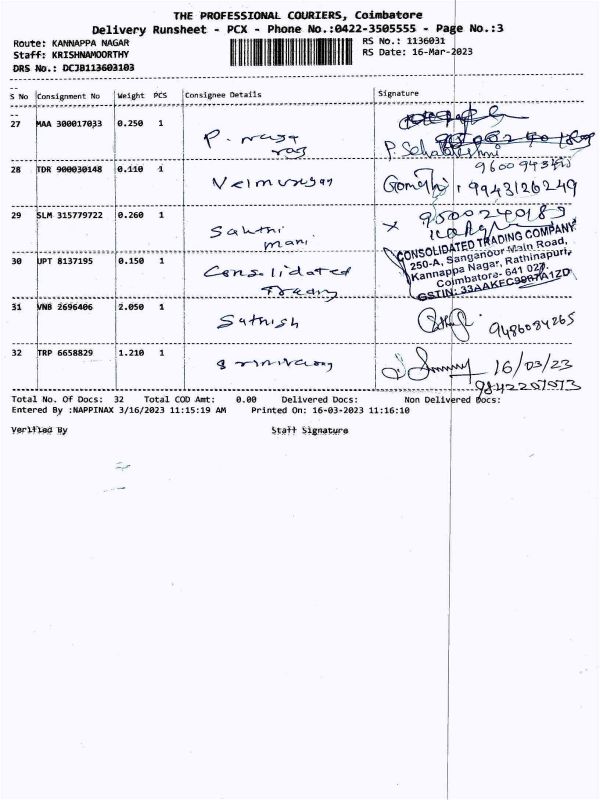 THE PROFESSIONAL COURIERS, Coimbatore
Delivery Runsheet - PCX - Phone No.:0422-3505555 - Page No.:3
Route: KANNAPPA NAGAR
Staff: KRISHNAMOORTHY
DRS No.: DCJB113603103
RS No.: 1136031
RS Date: 16-Mar-2023
S No Consignment No Weight PCS Consignee Details Signature
27 MAA 300017033 0.250 1
P.
28 TDR 900030148 0.110 1 Velmurugan
9943126249
29 SLM 315779722 0.260 1 Santhi
mani
X 9500240189
30 UPT 8137195 0.150 1 Consolidated
Trading
CONSOLIDATED TRADING COMPANY
250-A, Sanganoor Main Road,
Kannappa Nagar, Rathinapuri,
Coimbatore- 641 027.
31 VNB 2696406 2.050 1 Sathish
9486084265
32 TRP 6658829 1.210 1
16/03/23
9842207073
Total No. Of Docs: 32 Total COD Amt: 0.00 Delivered Docs: Non Delivered Docs:
Entered By :NAPPINAX 3/16/2023 11:15:19 AM Printed On: 16-03-2023 11:16:10
Verified By Staff Signature